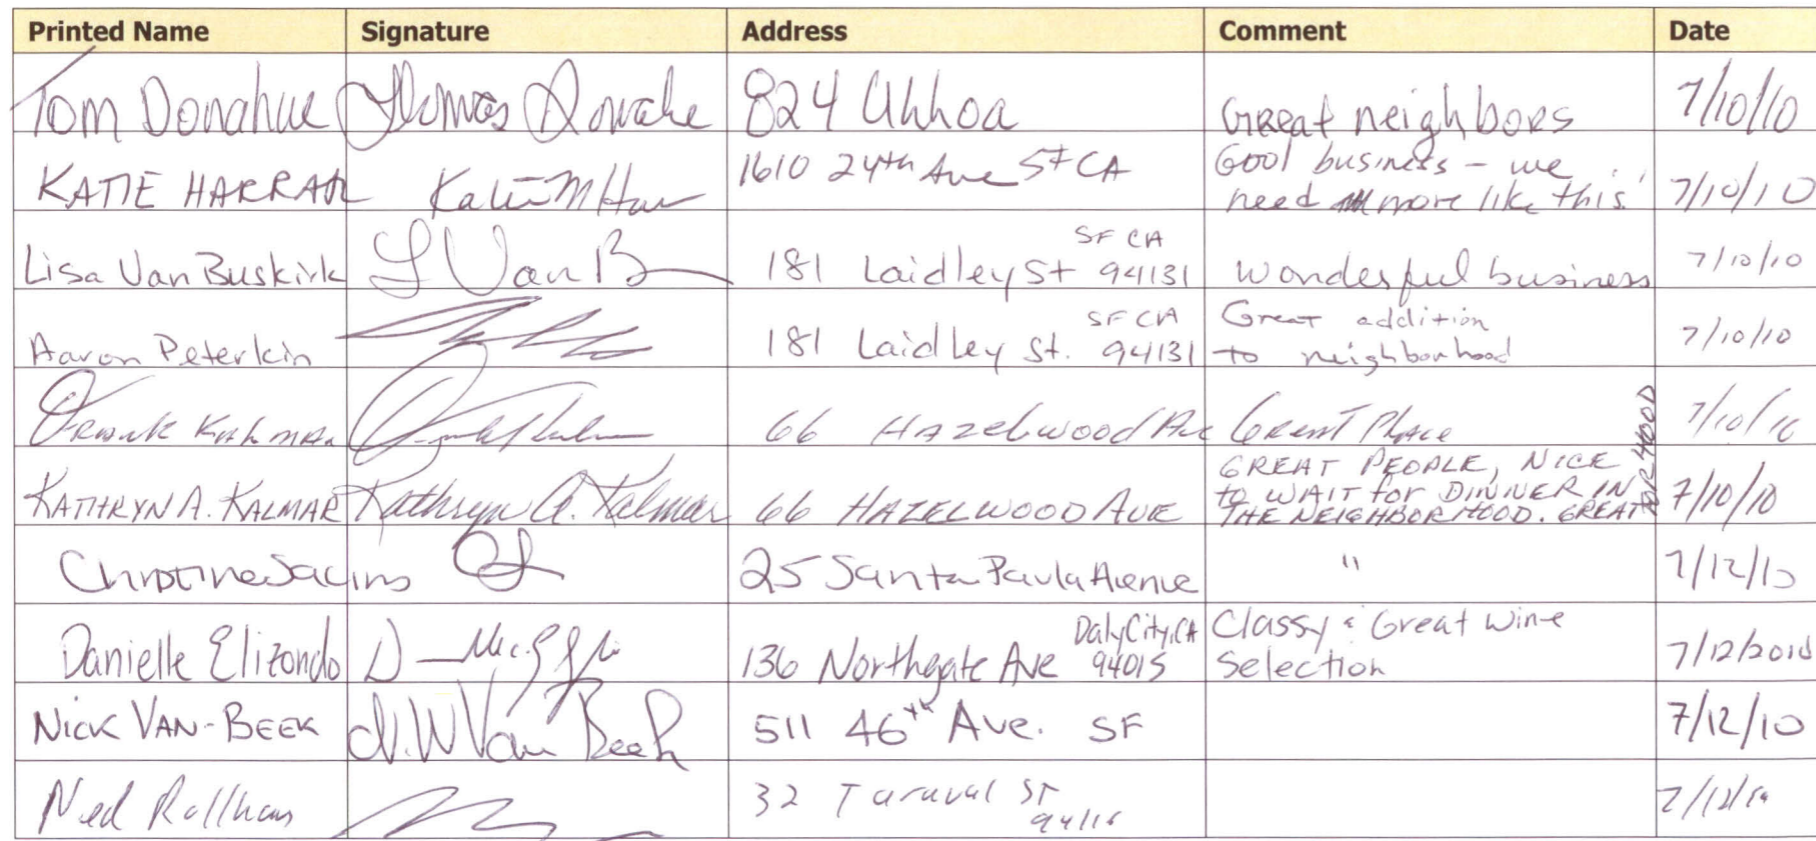 Printed Name Signature Address Comment Date
Tom Donahue Thomas Donahue 824 Ulloa Great neighbors 7/10/10
KATIE HARRAR Katie M Har 1610 24th Ave SF CA Good business - we need more like this! 7/10/10
Lisa Van Buskirk L Van B 181 Laidley St SF CA 94131 wonderful business 7/10/10
Aaron Peterkin 181 Laidley St. SF CA 94131 Great addition to neighborhood 7/10/10
Frank Kalmar 66 Hazelwood Ave Great Place 7/10/10
KATHRYN A. KALMAR Kathryn A. Kalmar 66 HAZELWOOD AVE GREAT PEOPLE, NICE to WAIT for DINNER IN THE NEIGHBORHOOD. GREAT FOR HOOD 7/10/10
Christine 25 Santa Paula Avenue " 7/12/10
Danielle Elizondo 136 Northgate Ave Daly City, CA 94015 Classy & Great Wine Selection 7/12/2010
NICK VAN-BEEK N.W Van Beek 511 46th Ave. SF 7/12/10
Ned 32 Taraval ST 94116 7/12/10